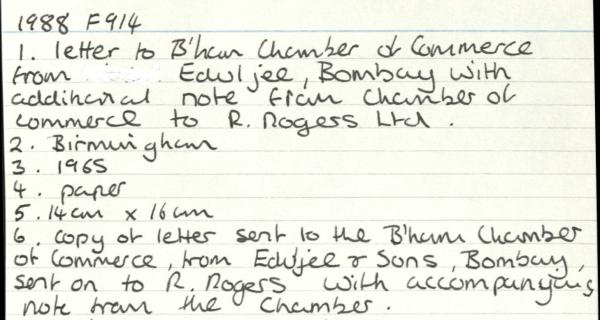 1988 F914
1. letter to B'ham Chamber of Commerce
from Eduljee, Bombay with
additional note from Chamber of
commerce to R. Rogers Ltd.
2. Birmingham
3. 1965
4. paper
5. 14cm x 16cm
6. copy of letter sent to the B'ham Chamber
of Commerce, from Eduljee & Sons, Bombay,
sent on to R. Rogers with accompanying
note from the Chamber.